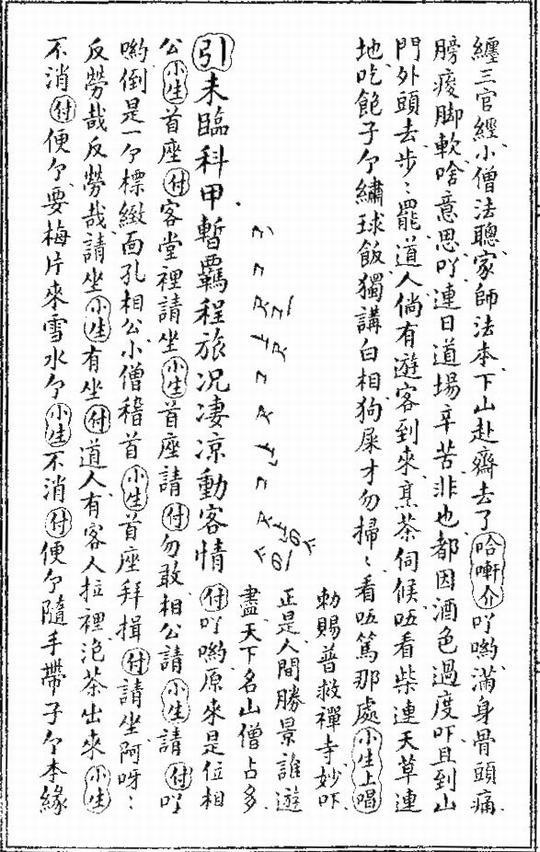 纏三官經小僧法聰家師法本下山赴齋去了哈嚹介吖喲滿身骨頭痛
膀痠脚軟啥意思吖連日道場辛苦非也都因酒色過度吓且到山
門外頭去步〻罷道人倘有遊客到來烹茶伺候唔看柴連天草連
地吃飽子个繡球飯獨講白相狗屎才勿掃〻看唔篤那處小生上唱
勅賜普救禪寺妙吓
正是人間勝景誰遊
盡天下名山僧占多
引未臨科甲暫覊程旅況凄凉動客情付吖喲原來是位相
公小生首座付客堂裡請坐小生首座請付勿敢相公請小生請付吖
喲倒是一个標緻面孔相公小僧稽首小生首座拜揖付請坐阿呀〻
反勞哉反勞哉請坐小生有坐付道人有客人拉裡泡茶出來小生
不消付便个要梅片來雪水个小生不消付便个隨手帶子个本緣